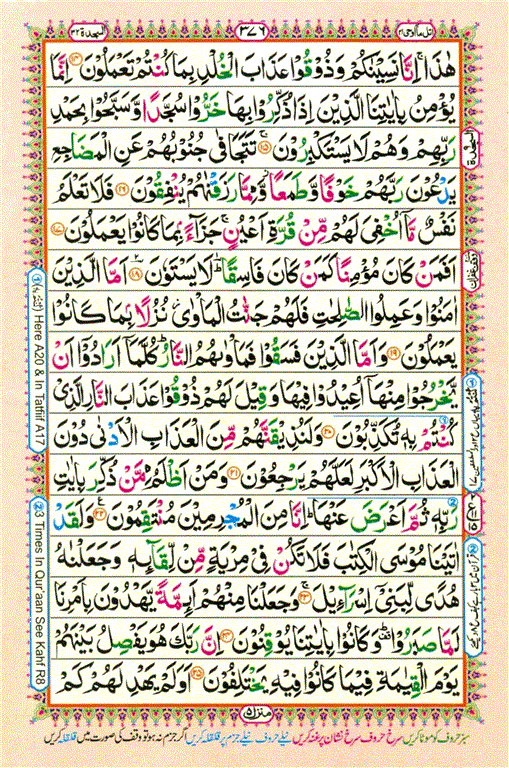 اتل ما اوحی ۲۱
۳۷۶
السجدة ۳۲
هٰذَا ۚ اِنَّا نَسِيْنٰكُمْ وَذُوْقُوْا عَذَابَ الْخُلْدِ بِمَا كُنْتُمْ تَعْمَلُوْنَ ﴿۱۴﴾ اِنَّمَا
يُؤْمِنُ بِاٰيٰتِنَا الَّذِيْنَ اِذَا ذُكِّرُوْا بِهَا خَرُّوْا سُجَّدًا وَّسَبَّحُوْا بِحَمْدِ
رَبِّهِمْ وَهُمْ لَا يَسْتَكْبِرُوْنَ ۩ ﴿۱۵﴾ تَتَجَافٰى جُنُوْبُهُمْ عَنِ الْمَضَاجِعِ
يَدْعُوْنَ رَبَّهُمْ خَوْفًا وَّطَمَعًا ۫ وَّمِمَّا رَزَقْنٰهُمْ يُنْفِقُوْنَ ﴿۱۶﴾ فَلَا تَعْلَمُ
نَفْسٌ مَّاۤ اُخْفِيَ لَهُمْ مِّنْ قُرَّةِ اَعْيُنٍ ۚ جَزَآءًۢ بِمَا كَانُوْا يَعْمَلُوْنَ ﴿۱۷﴾
اَفَمَنْ كَانَ مُؤْمِنًا كَمَنْ كَانَ فَاسِقًا ؕ لَا يَسْتَوٗنَ ﴿۱۸﴾ اَمَّا الَّذِيْنَ
اٰمَنُوْا وَعَمِلُوا الصّٰلِحٰتِ فَلَهُمْ جَنّٰتُ الْمَاْوٰى ۫ نُزُلًۢا بِمَا كَانُوْا
يَعْمَلُوْنَ ﴿۱۹﴾ وَاَمَّا الَّذِيْنَ فَسَقُوْا فَمَاْوٰىهُمُ النَّارُ ؕ كُلَّمَاۤ اَرَادُوْۤا اَنْ
يَّخْرُجُوْا مِنْهَاۤ اُعِيْدُوْا فِيْهَا وَقِيْلَ لَهُمْ ذُوْقُوْا عَذَابَ النَّارِ الَّذِيْ
كُنْتُمْ بِهٖ تُكَذِّبُوْنَ ﴿۲۰﴾ وَلَنُذِيْقَنَّهُمْ مِّنَ الْعَذَابِ الْاَدْنٰى دُوْنَ
الْعَذَابِ الْاَكْبَرِ لَعَلَّهُمْ يَرْجِعُوْنَ ﴿۲۱﴾ وَمَنْ اَظْلَمُ مِمَّنْ ذُكِّرَ بِاٰيٰتِ
رَبِّهٖ ثُمَّ اَعْرَضَ عَنْهَا ؕ اِنَّا مِنَ الْمُجْرِمِيْنَ مُنْتَقِمُوْنَ ﴿۲۲﴾ وَلَقَدْ
اٰتَيْنَا مُوْسَى الْكِتٰبَ فَلَا تَكُنْ فِيْ مِرْيَةٍ مِّنْ لِّقَآئِهٖ وَجَعَلْنٰهُ
هُدًى لِّبَنِيْۤ اِسْرَآءِيْلَ ۚ ﴿۲۳﴾ وَجَعَلْنَا مِنْهُمْ اَئِمَّةً يَّهْدُوْنَ بِاَمْرِنَا
لَمَّا صَبَرُوْا ۫ؕ وَكَانُوْا بِاٰيٰتِنَا يُوْقِنُوْنَ ﴿۲۴﴾ اِنَّ رَبَّكَ هُوَ يَفْصِلُ بَيْنَهُمْ
يَوْمَ الْقِيٰمَةِ فِيْمَا كَانُوْا فِيْهِ يَخْتَلِفُوْنَ ﴿۲۵﴾ اَوَلَمْ يَهْدِ لَهُمْ كَمْ
منزل ۵
السجدة
وقف غفران
Here A20 & In Tatfiif A17
3 Times In Qur'aan See Kahf R8
سبز حروف کو موٹا کریں سرخ حروف سرخ نشان پر غنہ کریں نیلے حروف نیلے جزم پر قلقلہ کریں اگر جزم نہ ہو تو وقف کی صورت میں قلقلہ کریں